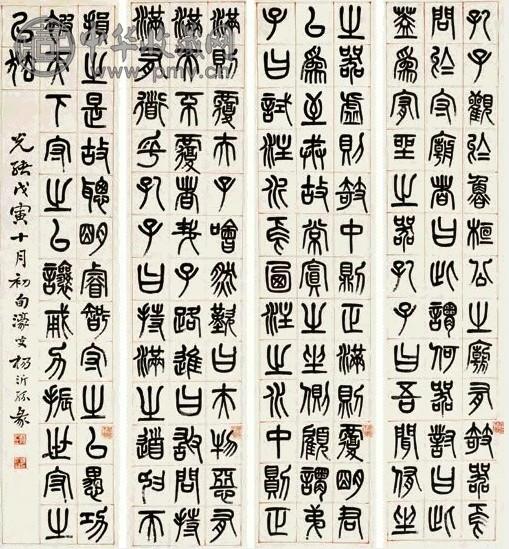 孔子觀於魯桓公之廟有欹器焉
問於守廟者曰此謂何器對曰此
蓋為宥坐之器孔子曰吾聞侑坐
之器虛則欹中則正滿則覆明君
以為至誡故常寘之坐側顧謂弟
子曰試注水焉注之水中則正
滿則覆夫子喟然歎曰夫物惡有
滿而不覆者哉子路進曰敢問持
滿有道乎孔子曰持滿之道挹而
損之是故聰明睿智守之以愚功
天下守之以讓勇力振世守之
以怯
光緒戊寅十月初旬濠叟楊沂孫篆
中华收藏网